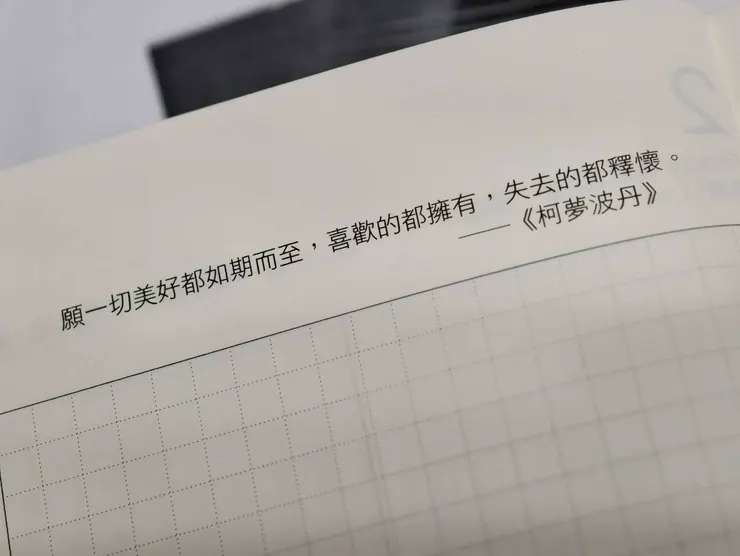 願一切美好都如期而至，喜歡的都擁有，失去的都釋懷。
——《柯夢波丹》
2